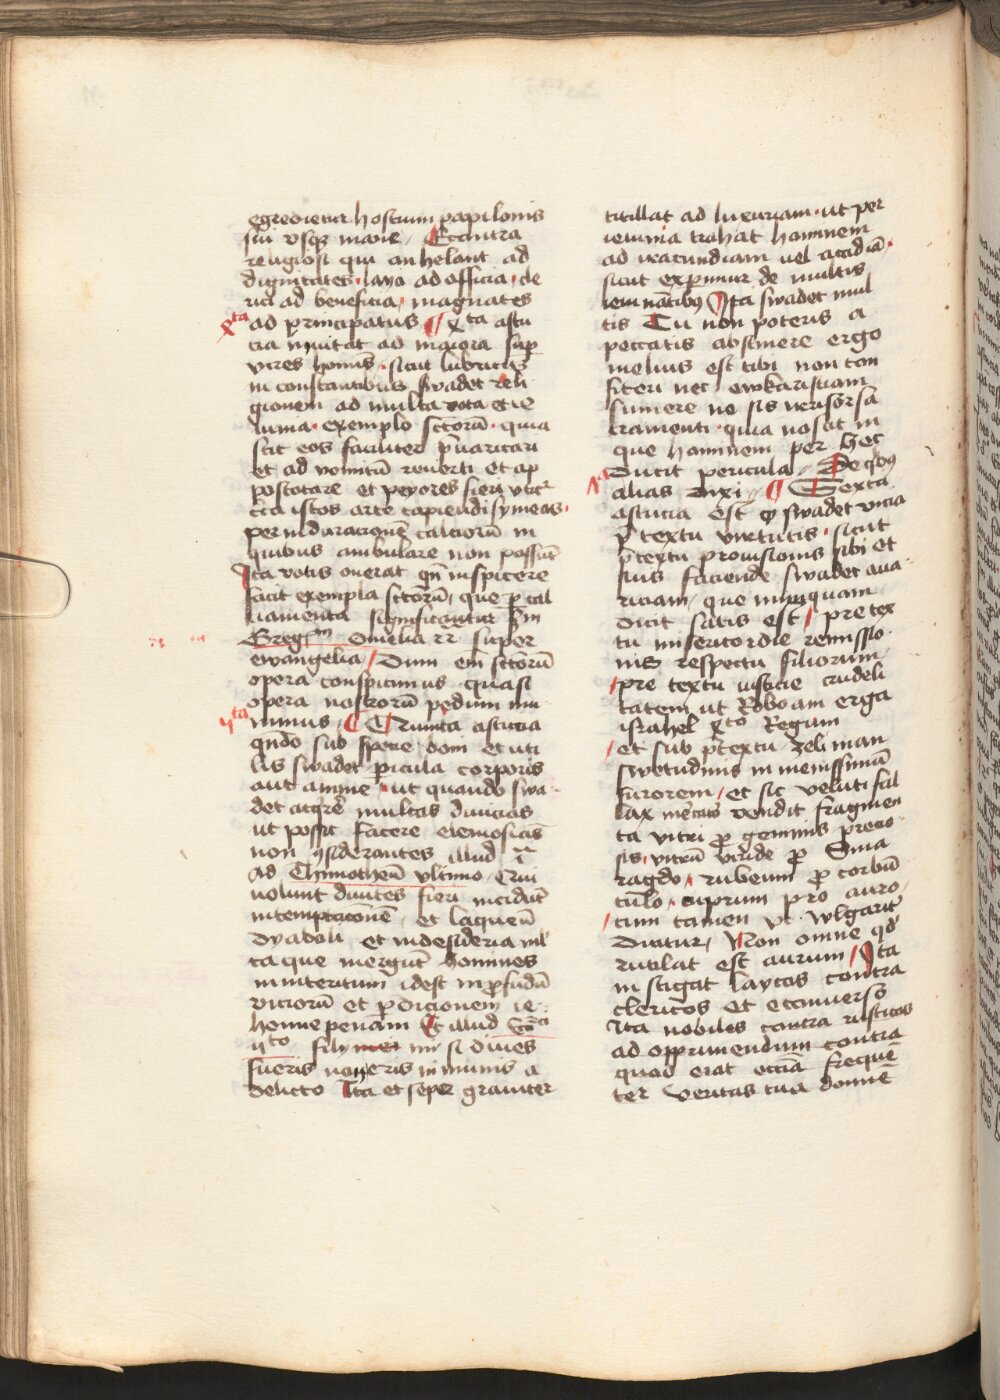 egredietur hostium papilonis
sui vsqꝫ mane / Econtra
religiosi qui anhelant ad
dignitates · layci ad officia · cle
rici ad beneficia · magnates
ad principatus ¶ xta astu
cia inuitat ad maiora sup
vires hominis · sicut lubricus
in constantibus swadet reli
gionem ad multa vota et ie
iunia · exemplo sctorū · quia
scit eos faciliter p̄uaricari
et ad vomitū reuerti et ap
postotare et peyores fieri
istos arte capiendi symeas ·
per induracionē calciorū in
quibus ambulare non possūt
Ita votis onerat qn̄ inspicere
facit exempla sctorū · que p cal
ciamenta significantur
Gregm Omelia super
ewangelia / Dum em̄ sctorū
opera conspicimus quasi
opera nostrorū pedum mu
nimus / ¶ Quinta astucia
qn̄do sub specie doni et uti
lis swadet picula corporis
aut anime · ut quando swa
det acqrē multas diuicias
ut possit facere elemosias
non ꝯsiderantes illud
ad Thimotheū vltimo / Qui
uolunt diuites fieri incidūt
in temptacōnē · et laqueū
dyaboli et in desideria mul
ta que mergūt homines
in interitum idest in ꝓfūdū
viciorū et pdicionem ie
henne penam Et illud
fili mi si diues
fueris non eris inmunis a
delicto Ita et seper grauiter
titillat ad luxuriam · ut per
ieiunia trahat hominem
ad iracundiam uel acadiā ·
sicut experimur de multis
ieiunātibꝰ Ita swadet mul
tis Tu non poteris a
peccatis abstinere ergo
melius est tibi non con
fiteri nec ewkaristiam
sumere ne sis sa
cramenti · quia noscit in
que hominem per hec
ducit pericula / De qbꝰ
alias dixi / ¶ Sexta
astucia est ꝙ swadet vicia
p̄ textu virtutis · sicut
p̄textu prouisionis sibi et
suis faciende swadet aua
riciam / que nunquam
dicit satis est / pre tex
tu misericordie remissio
nis respectu filiorum /
/ pre textu iusticie crudeli
tatem ut Roboam erga
israhel Regum
/ et sub p̄textu zeli man
swetudinis in menissimū
furorem / et sic veluti fal
lax vendit fragmen
ta vitri p gemmis precio
sis · vitrū viride p Sma
ragdo · rubeum p corbū
culo · cuprum pro auro /
/ cum tamen vt wlgarit
dicatur / Non omne qd
rutilat est aurum / Ita
in stigat laycos contra
clericos et econuerso
Ita nobiles contra rusticos
ad opprimendum contra
quod erat frequē
ter veritas tua domine
xta
vta